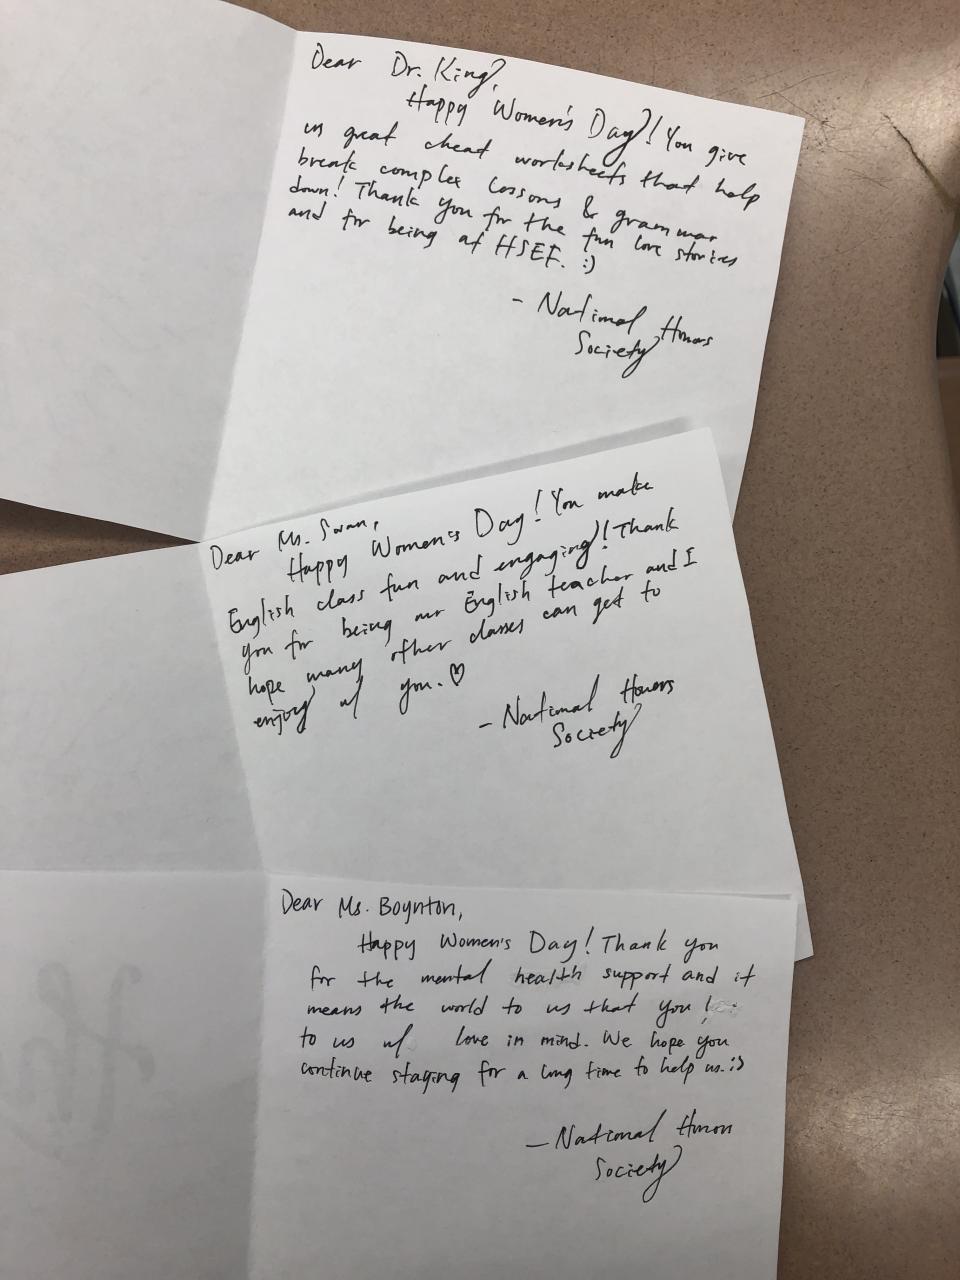 Dear Dr. King,
Happy Women's Day! You give
us great cheat worksheets that help
break complex lessons & grammar
down! Thank you for the fun love stories
and for being at HSEF. :)
- National Honors
Society
Dear Ms. Swan,
Happy Women's Day! You make
English class fun and engaging! Thank
you for being our English teacher and I
hope many other classes can get to
enjoy w/ you. ♡
- National Honors
Society
Dear Ms. Boynton,
Happy Women's Day! Thank you
for the mental health support and it
means the world to us that you!
to us w/ love in mind. We hope you
continue staying for a long time to help us. :)
- National Honor
Society